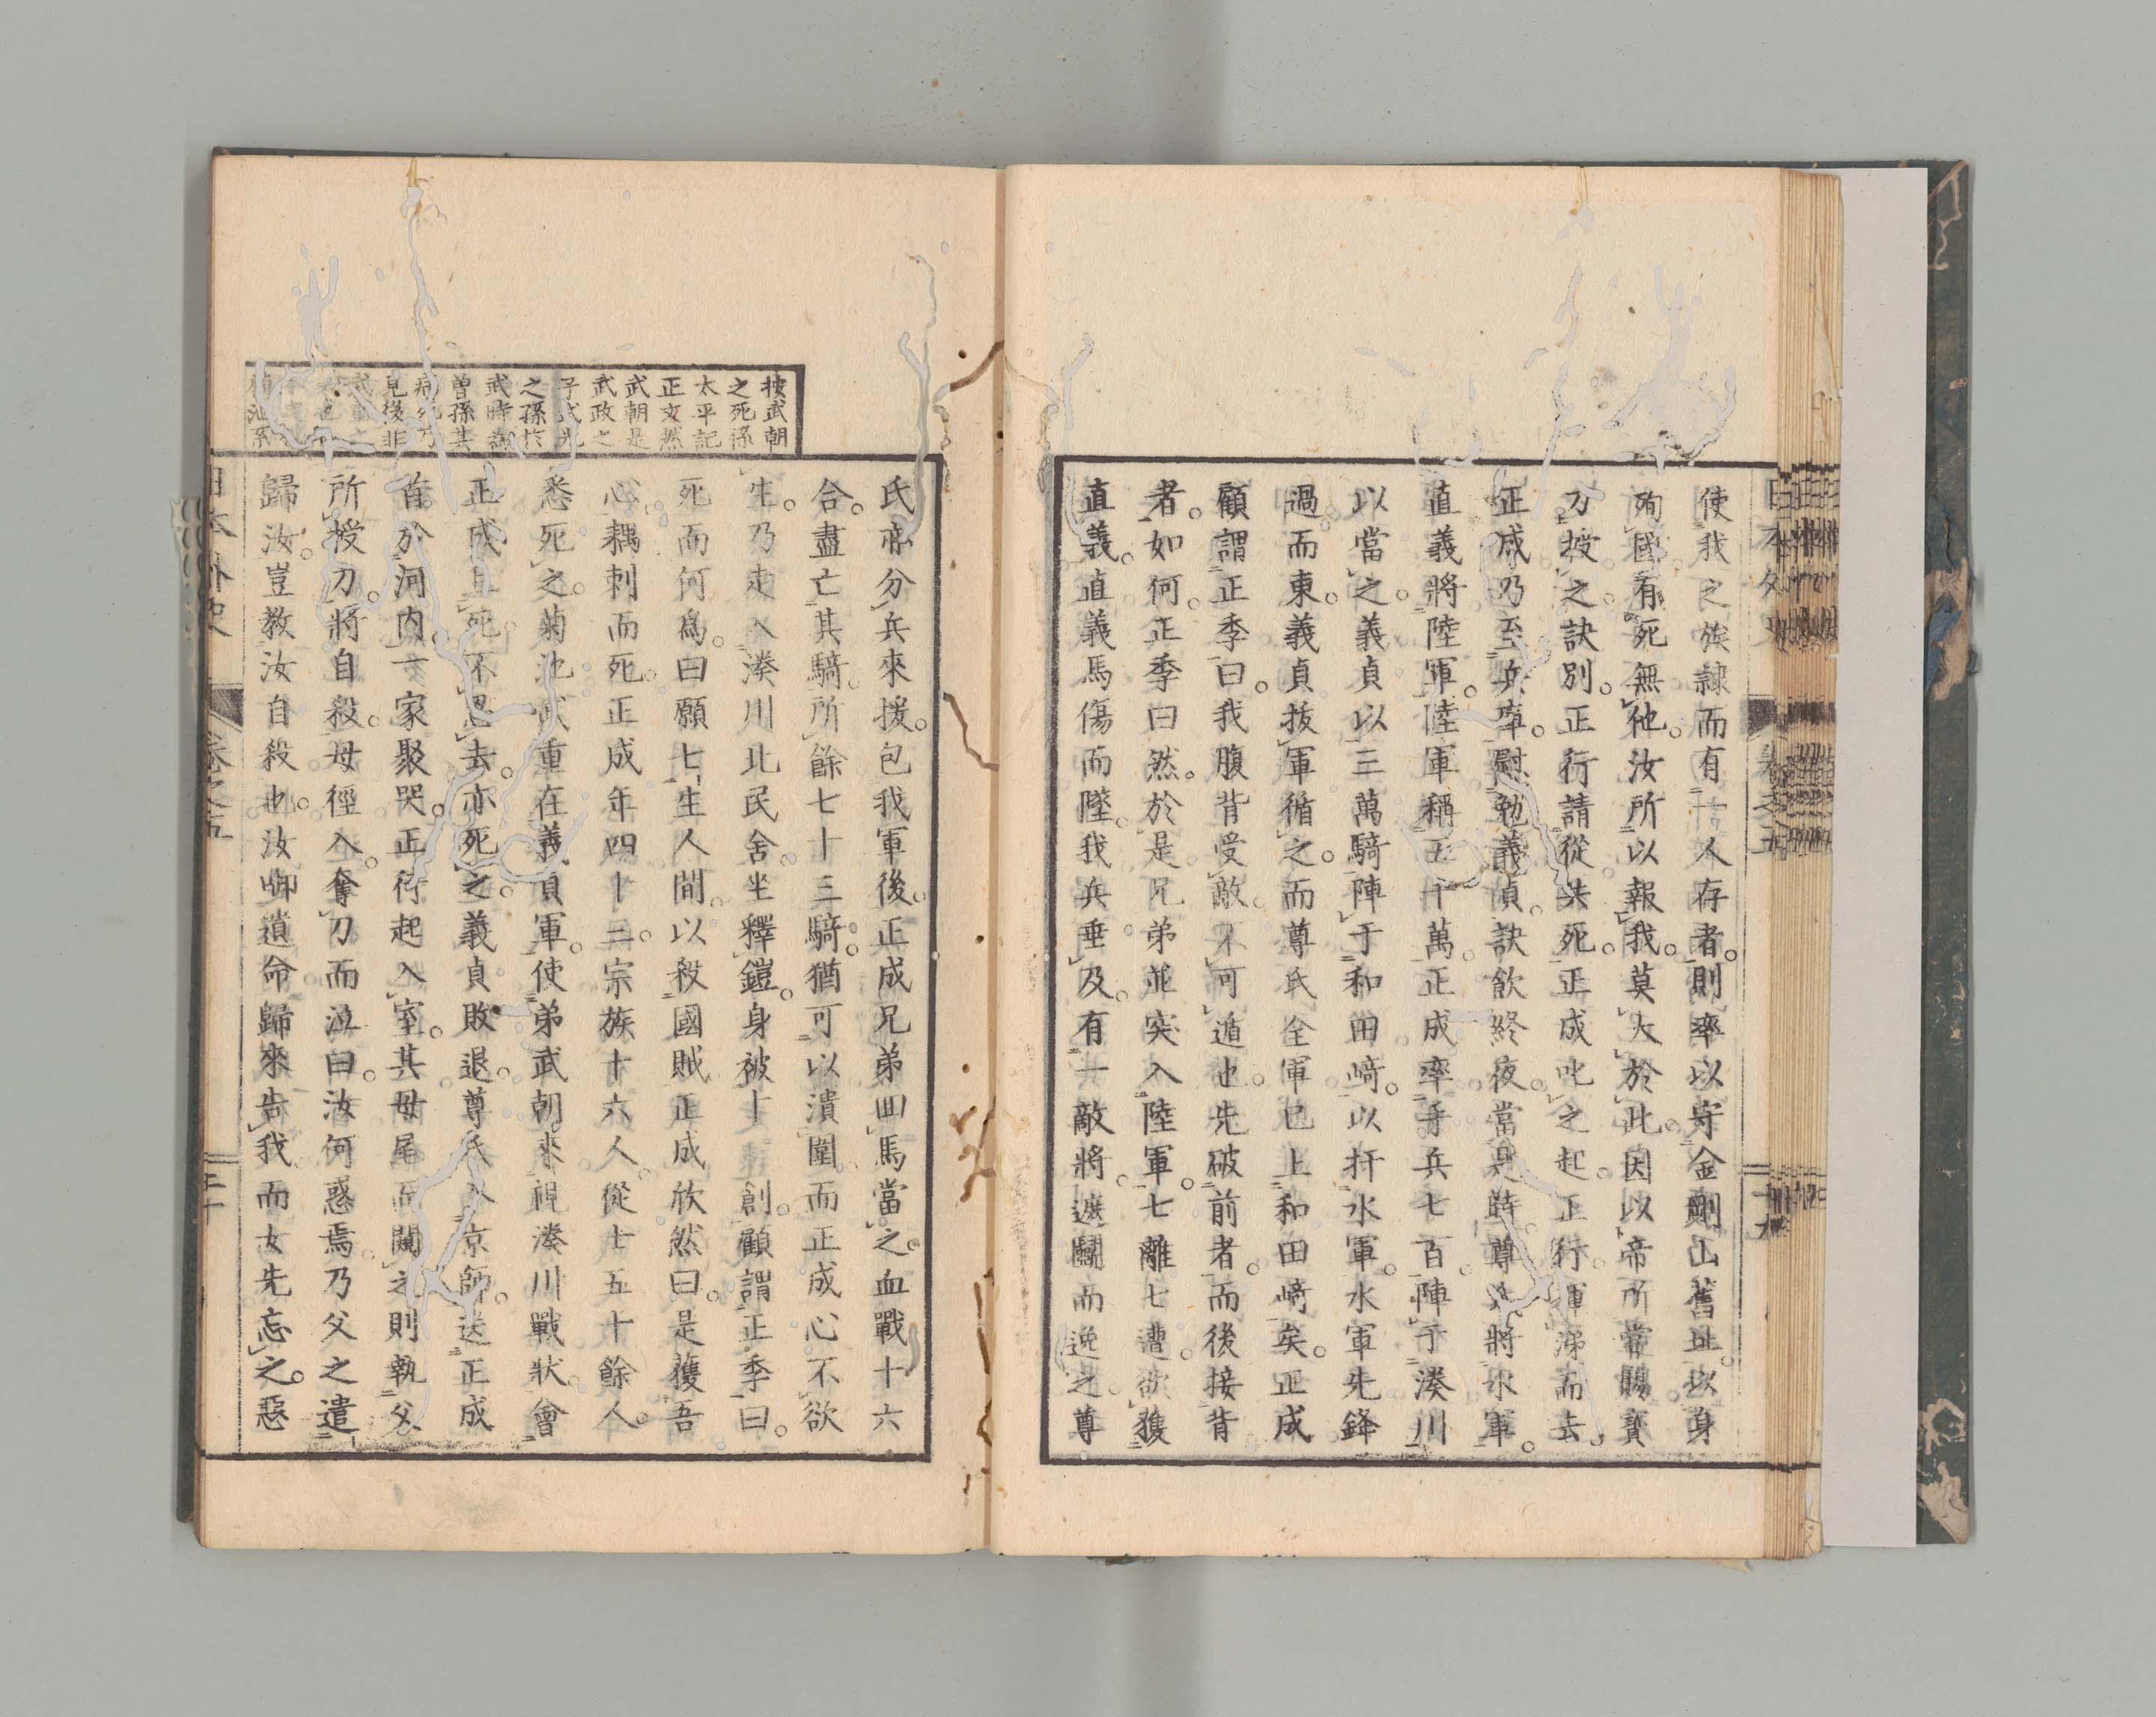 使我之族隷而有一人存者。則率以守金剛山舊址。以身
殉國有死無他。汝所以報我。莫大於此。因以帝所嘗賜寶
刀授之訣別。正行請從共死。正成叱之起。正行揮涕而去。
正成乃至兵庫。慰勉義貞。訣飲終夜。當是時尊氏將水軍。
直義將陸軍。陸軍稱五十萬。正成率手兵七百陣于湊川
以當之。義貞以三萬騎陣于和田﨑。以扞水軍。水軍先鋒
過而東。義貞拔軍循之。而尊氏全軍已上和田﨑矣。正成
顧謂正季曰。我腹背受敵。不可遁也。先破前者。而後接背
者。如何。正季曰然。於是兄弟並突入陸軍。七離七遭。欲獲
直義。直義馬傷而墜。我兵垂及。有一敵將。遮鬬而逸之。尊
氏亦分兵來援。包我軍後。正成兄弟囬馬當之。血戰十六
合。盡亡其騎。所餘七十三騎。猶可以潰圍。而正成心不欲
生。乃走入湊川北民舍。坐釋鎧。身被十一創。顧謂正季曰。
死而何爲。曰願七生人間。以殺國賊。正成欣然曰。是獲吾
心。耦刺而死。正成年四十三。宗族十六人。從士五十餘人。
悉死之。菊池武重在義貞軍。使弟武朝來視湊川戰狀。會
正成且死。不忍去。亦死之。義貞敗退。尊氏入京師。送正成
首於河内。一家聚哭。正行起入室。其母尾而闞之。則執父
所授刀。將自殺。母徑入。奪刀而泣曰。汝何惑焉。乃父之遣
歸汝。豈教汝自殺也。汝啣遺命歸來告我。而女先忘之。惡
按武朝
之死係
太平記
正文然
武朝是
武政之
子武光
之孫於
武時爲
曾孫其
病死乃
見後非
日本外史
卷之五
二十
日本外史
卷之五
十九